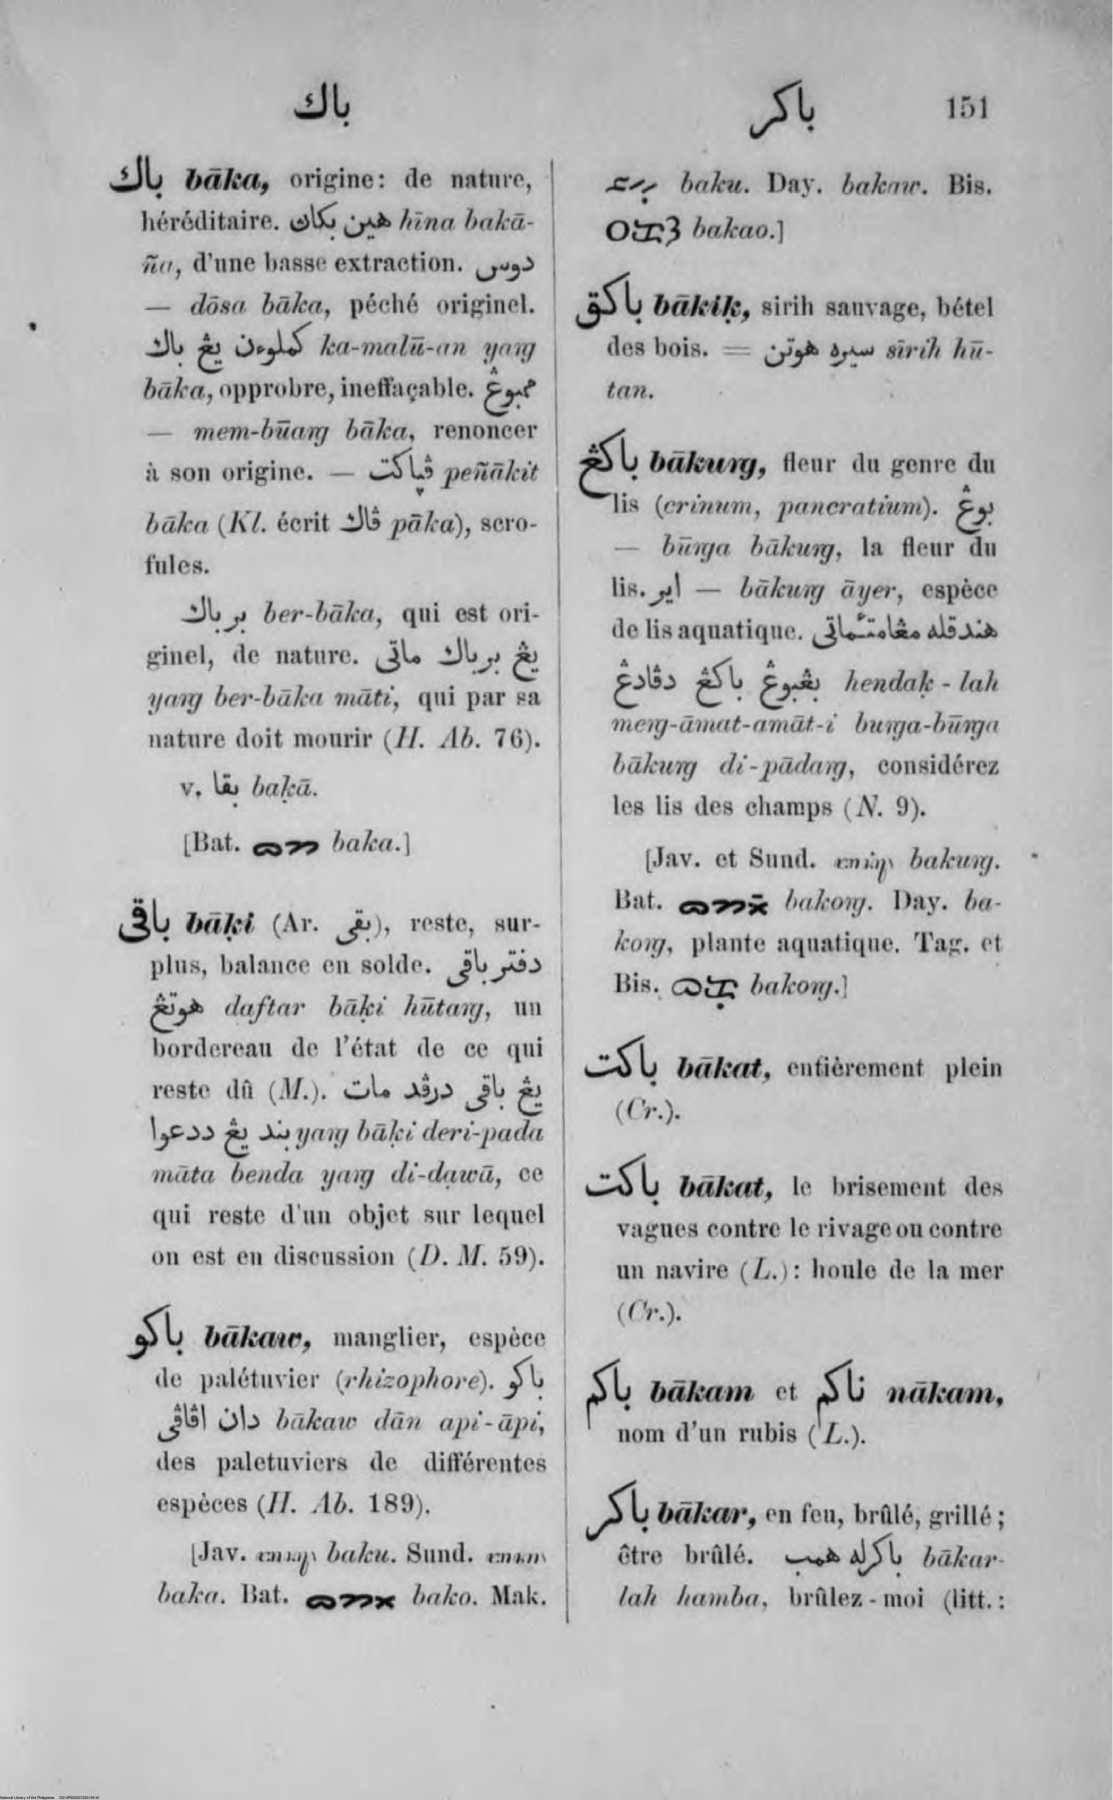 باك
باكر 151
باك bāka, origine: de nature,
héréditaire. هين بكاڽ hīna bakā-
ña, d'une basse extraction. دوس
— dōsa bāka, péché originel.
كملوءن يڠ باك ka-malū-an yaṅg
bāka, opprobre, ineffaçable. ممبوڠ
— mem-būaṅg bāka, renoncer
à son origine. — ڤياكت peñākit
bāka (Kl. écrit ڤاك pāka), scro-
fules.
بر باك ber-bāka, qui est ori-
ginel, de nature. يڠ برباك ماتي
yaṅg ber-bāka māti, qui par sa
nature doit mourir (H. Ab. 76).
v. بقا baḳā.
[Bat. baka.]
باقي bāḳi (Ar. بقى), reste, sur-
plus, balance en solde. دفتر باقي
هوتڠ daftar bāḳi hūtaṅg, un
bordereau de l'état de ce qui
reste dû (M.). يڠ باقي درڤد مات
بند يڠ ددعوا yaṅg bāḳi deri-pada
māta benda yaṅg di-dạwā, ce
qui reste d'un objet sur lequel
on est en discussion (D. M. 59).
باكو bākaw, manglier, espèce
de palétuvier (rhizophore). باكو
دان اڤاڤي bākaw dān api-āpi,
des paletuviers de différentes
espèces (H. Ab. 189).
[Jav. baku. Sund.
baka. Bat. bako. Mak.
baku. Day. bakaw. Bis.
bakao.]
باكق bākiḳ, sirih sauvage, bétel
des bois. = سيره هوتن sīrih hū-
tan.
باكڠ bākuṅg, fleur du genre du
lis (crinum, pancratium). بوڠ
— būṅga bākuṅg, la fleur du
lis. اير — bākuṅg āyer, espèce
de lis aquatique. هندقله مڠامتئماتي
بڠبوڠ باكڠ دڤادڠ hendaḳ-lah
meṅg-āmat-amāt-i buṅga-būṅga
bākuṅg di-pādaṅg, considérez
les lis des champs (N. 9).
[Jav. et Sund. bakuṅg.
Bat. bakoṅg. Day. ba-
koṅg, plante aquatique. Tag. et
Bis. bakoṅg.]
باكت bākat, entièrement plein
(Cr.).
باكت bākat, le brisement des
vagues contre le rivage ou contre
un navire (L.): houle de la mer
(Cr.).
باكم bākam et ناكم nākam,
nom d'un rubis (L.).
باكر bākar, en feu, brûlé, grillé;
être brûlé. باكرله همب bākar-
lah hamba, brûlez-moi (litt.: